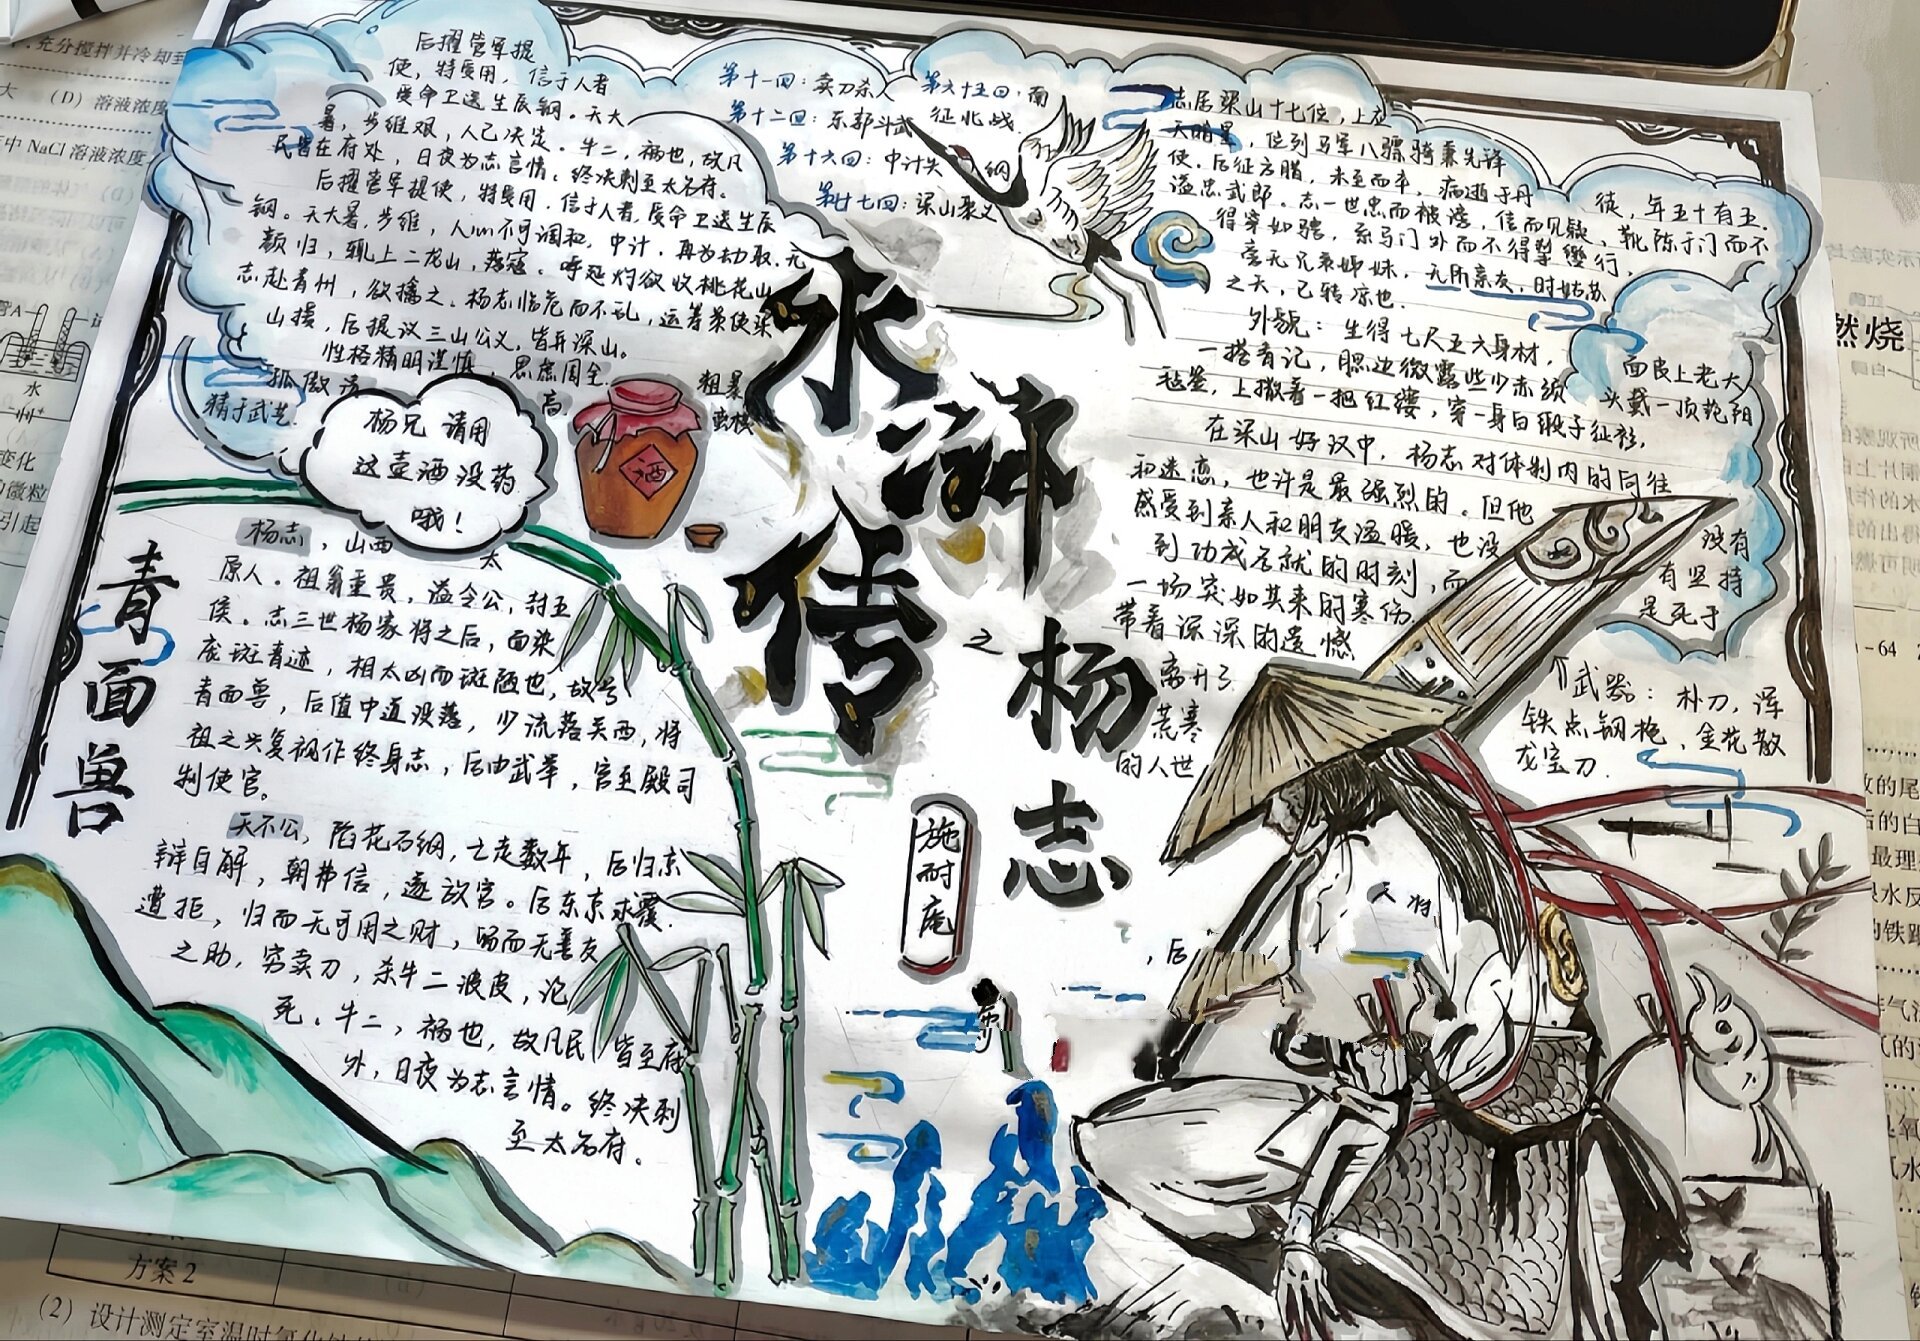 后擢管军提
使，特受用，信于人者
受命卫送生辰钢。天大
暑，步维艰，人已决定。牛二，祸也，故凡
民皆在府处，日夜为志言情。终决刺至太名府。
后擢管军提使，特受用，信于人者，受命卫送生辰
钢。天大暑，步维，人心不可调和，中计，再为劫取，无
颜归，辄上二龙山，落寇。呼延灼欲收桃花山
志赴青州，欲擒之。杨志临危而不乱，运筹策使梁
山援，后提议三山公义，皆并深山。
性格精明谨慎，思虑周全
孤傲清高
粗暴
蛮横
精于武艺
第十一回：卖刀杀人
第十二回：东郭斗武
第十六回：中计失 纲
第廿七回：梁山聚义
第六十五回：南
征北战
志居梁山十七位，上
天暗星，位列马军八骠骑兼先锋
使。后征方腊，未至而卒，病逝于丹
徒，年五十有五。
谥忠武郎。志一世忠而被谤，信而见疑，靴陈于门而不
得穿如骋，系马门外而不得掣辔行，
旁无兄弟姊妹，无所亲友，时姑苏
之天，已转凉也。
外貌：生得七尺五六身材，
面皮上老大
一搭青记，腮边微露些少赤须
头戴一顶范阳
毡笠，上撒着一把红缨，穿一身白缎子征衫，
在梁山好汉中，杨志对体制内的向往
和迷恋，也许是最强烈的。但他
没有
感受到亲人和朋友温暖，也没
有坚持
到功成名就的时刻，而
是死于
一场突如其来的寒伤
带着深深的遗憾
离开了
荒寒
的人世
武器：朴刀，浑
铁点钢枪，金花散
龙宝刀.
水
浒
传
之
杨
志
施
耐
庵
杨兄 请用
这壶酒没药
哦！
酒
青
面
兽
杨志，山西太
原人。祖翁重贵，谥令公，封五
侯。志三世杨家将之后，面染
庞斑青迹，相太凶而斑陋也，故号
青面兽，后值中道没落，少流落关西，将
祖之兴复视作终身志，后由武举，官至殿司
制使官。
天不公，陷花石纲，亡走数年，后归京
辩自解，朝弗信，遂放官。后东京求覆
遭拒，归而无可用之财，旸而无善友
之助，穷卖刀，杀牛二泼皮，沦
死。牛二，祸也，故凡民皆至府
外，日夜为志言情。终决刺
至太名府。
，后
天将
充分搅拌并冷却到
(D) 溶液浓度
中 NaCl 溶液浓度
水
变化
的微粒
引起
方案 2
燃烧
-64